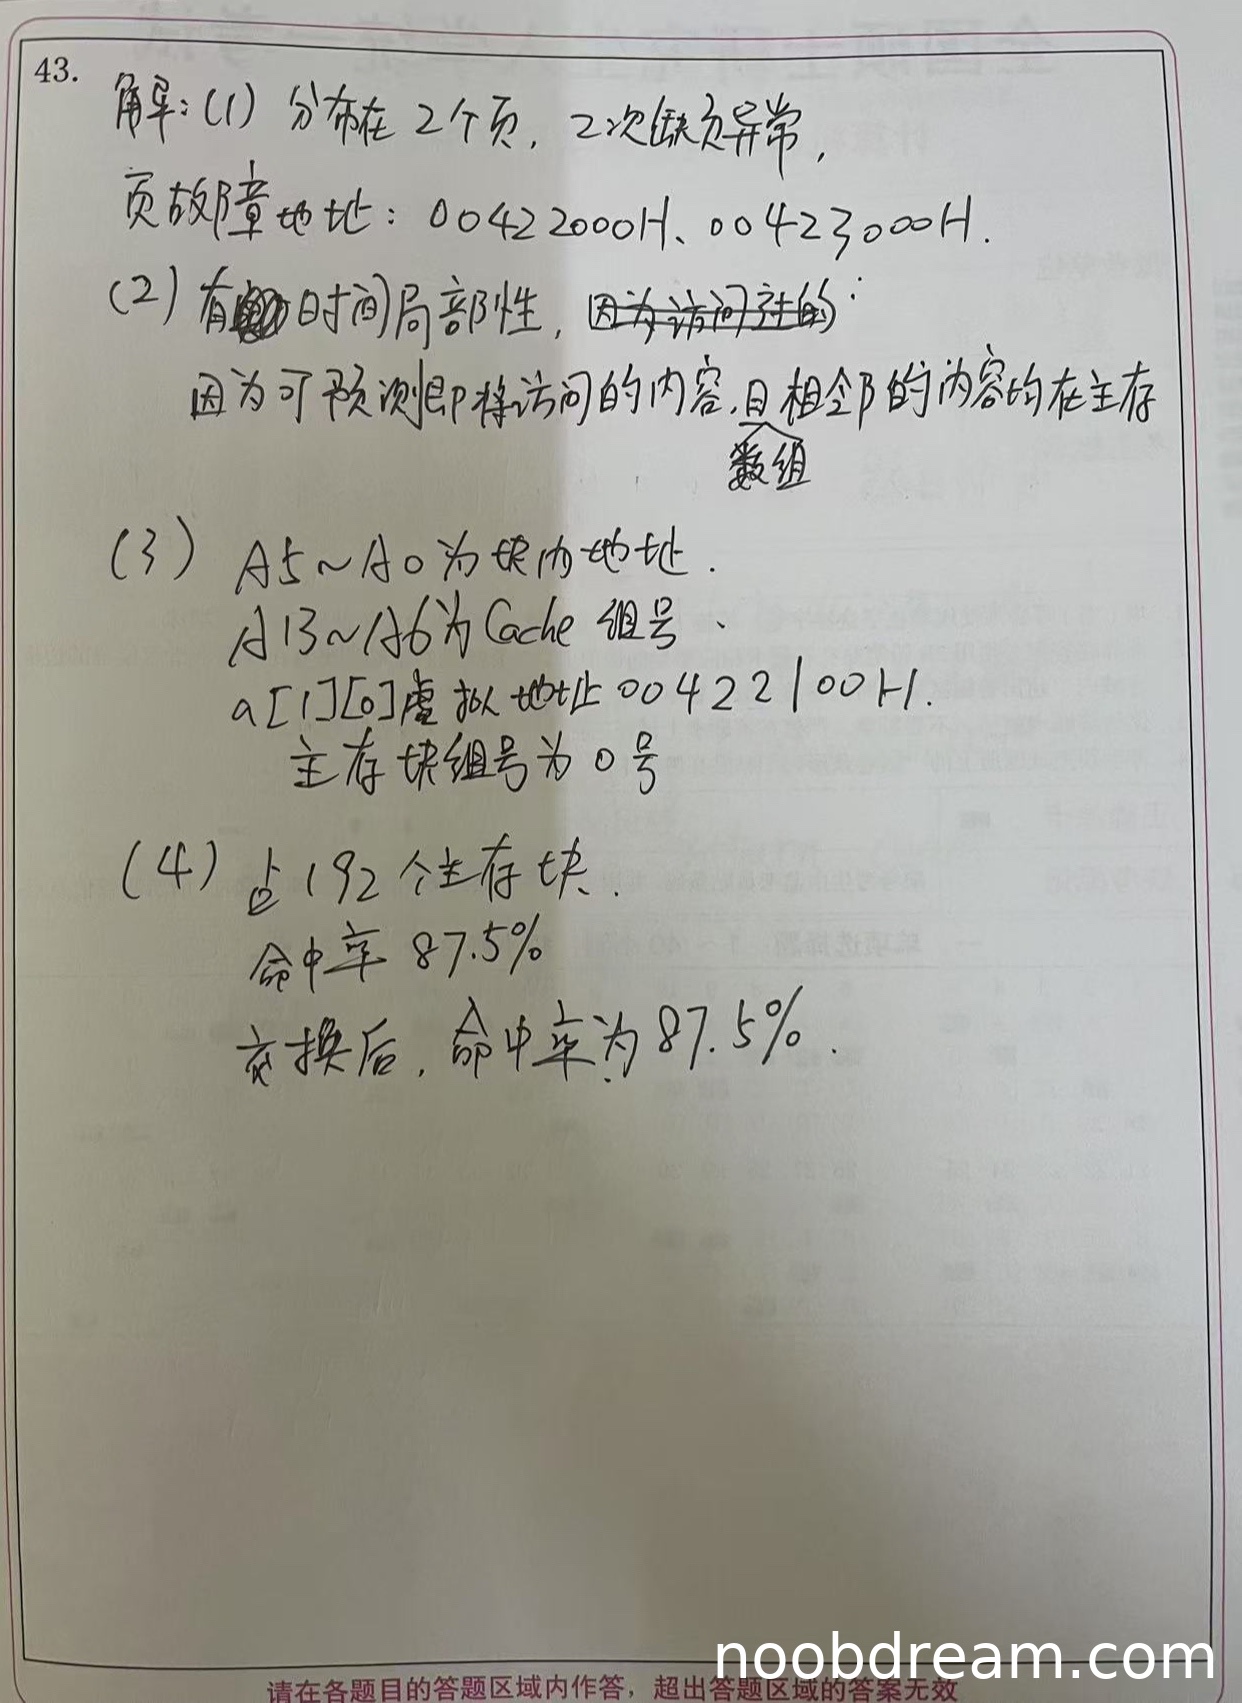 43.
解:(1) 分布在2个页, 2次缺页异常,
页故障地址: 00422000H、00423000H.
(2) 有时间局部性, 因为访问过的
因为可预测即将访问的内容,且相邻的内容均在主存
数组
(3) A5~A0为块内地址.
A13~A6为Cache 组号、
a[1][0]虚拟地址00422100H.
主存块组号为0号
(4) 占192个主存块.
命中率 87.5%
交换后, 命中率为87.5%.
请在各题目的答题区域内作答，超出答题区域的答案无效
noobdream.com